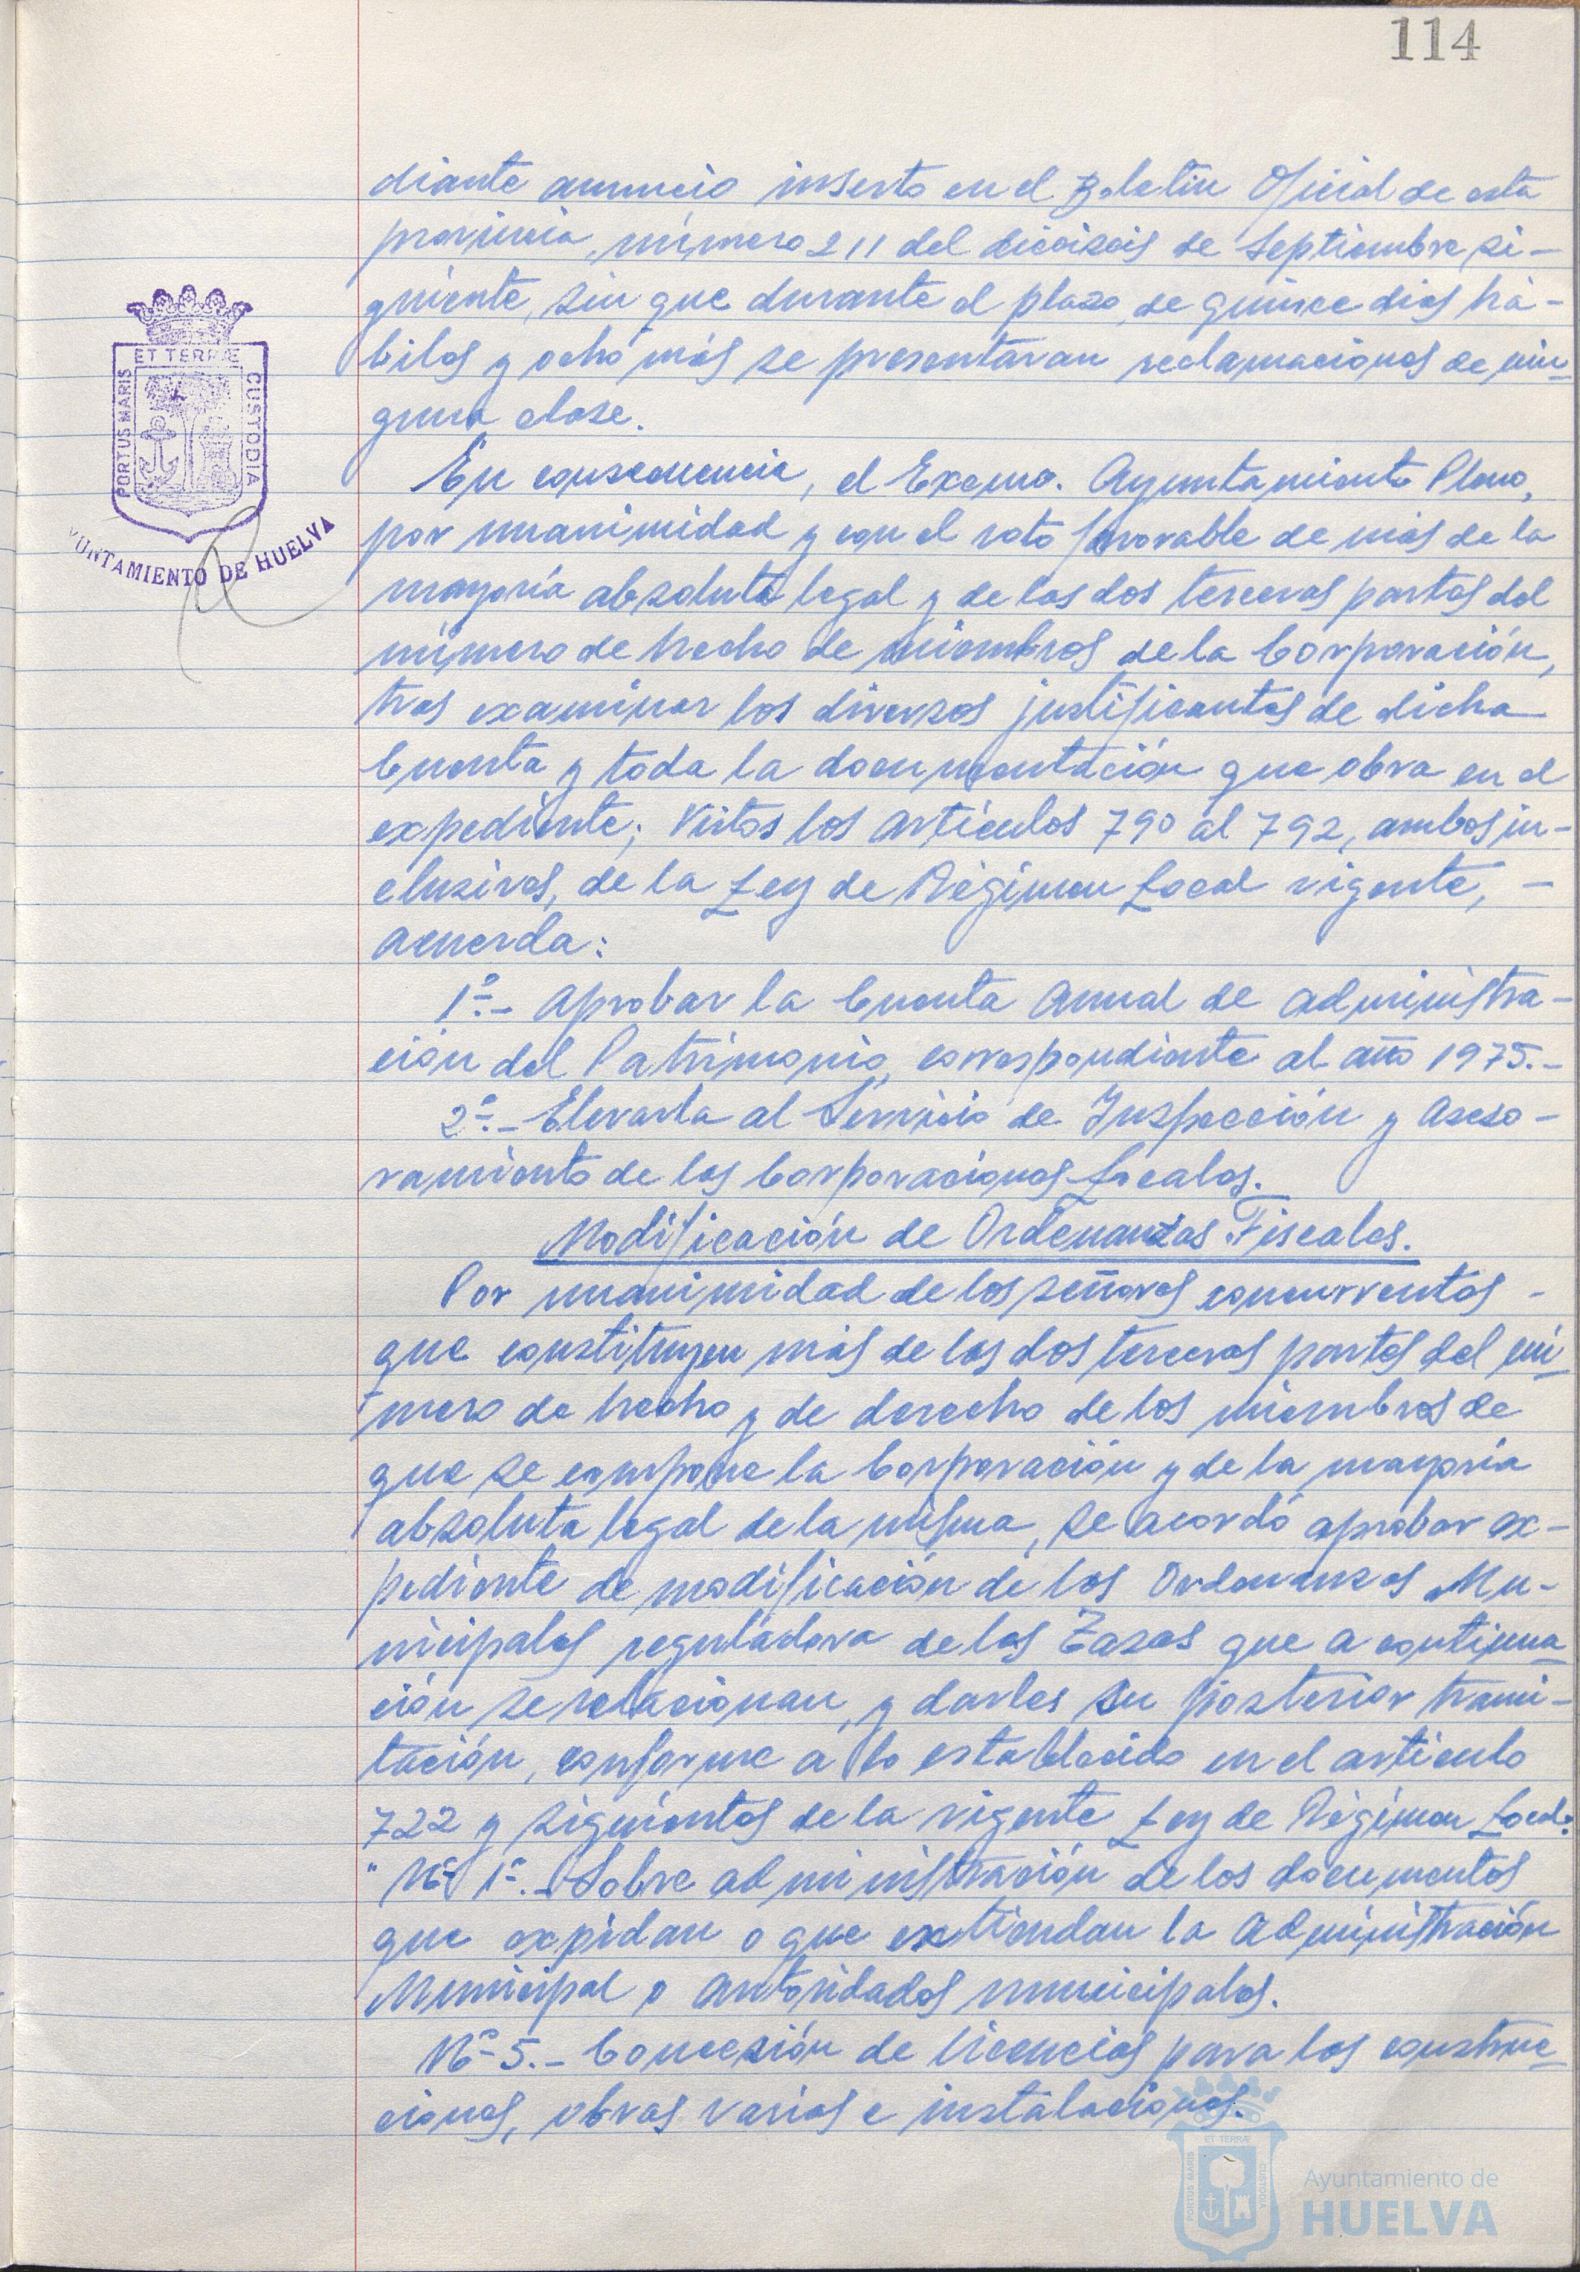 114
diante anuncio inserto en el Boletin Oficial de esta
provincia, número 211 del dieciseis de Septiembre si-
guiente, sin que durante el plazo, de quince dias há-
biles y ocho más se presentaran reclamaciones de nin-
guna clase.
En consecuencia, el Excmo. Ayuntamiento Pleno,
por unanimidad y con el voto favorable de más de la
mayoría absoluta legal y de las dos terceras partes del
número de hecho de miembros de la Corporación,
tras examinar los diversos justificantes de dicha
Cuenta y toda la documentación que obra en el
expediente; Vistos los artículos 790 al 792, ambos in-
clusives, de la Ley de Régimen Local vigente, -
acuerda:
1º.- Aprobar la Cuenta Anual de administra-
ción del Patrimonio, correspondiente al año 1975.-
2º.- Elevarla al Servicio de Inspección y Aseso-
ramiento de las Corporaciones Locales.
Modificación de Ordenanzas Fiscales.
Por unanimidad de los señores concurrentes -
que constituyen más de las dos terceras partes del nú-
mero de hecho y de derecho de los miembros de
que se compone la Corporación y de la mayoría
absoluta legal de la misma, se acordó aprobar ex-
pediente de modificación de las Ordenanzas Mu-
nicipales reguladora de las Tasas que a continua-
ción se relacionan, y darles su posterior trami-
tación, conforme a lo establecido en el artículo
722 y siguientes de la vigente Ley de Régimen Local:
" Nº 1º.- Sobre administración de los documentos
que expidan o que extiendan la Administración
Municipal o Autoridades municipales.
Nº 5.- Concesión de licencias para las construc-
ciones, obras varias e instalaciones.
ET TERRÆ
PORTUS MARIS
CUSTODIA
YUNTAMIENTO DE HUELVA
ET TERRÆ
PORTUS MARIS
CUSTODIA
Ayuntamiento de
HUELVA